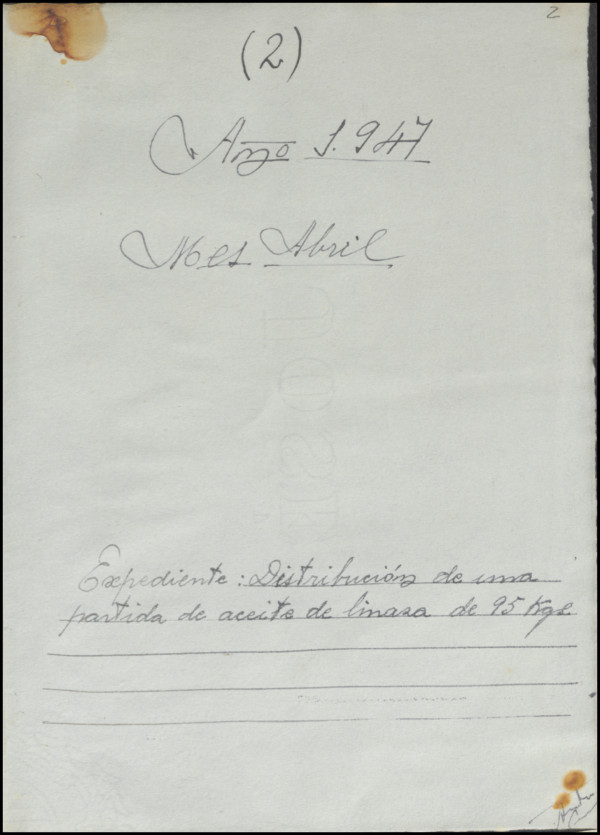 2
(2)
Año 1.947
Mes Abril
Expediente: Distribución de una
partida de aceite de linaza de 95 Kgs